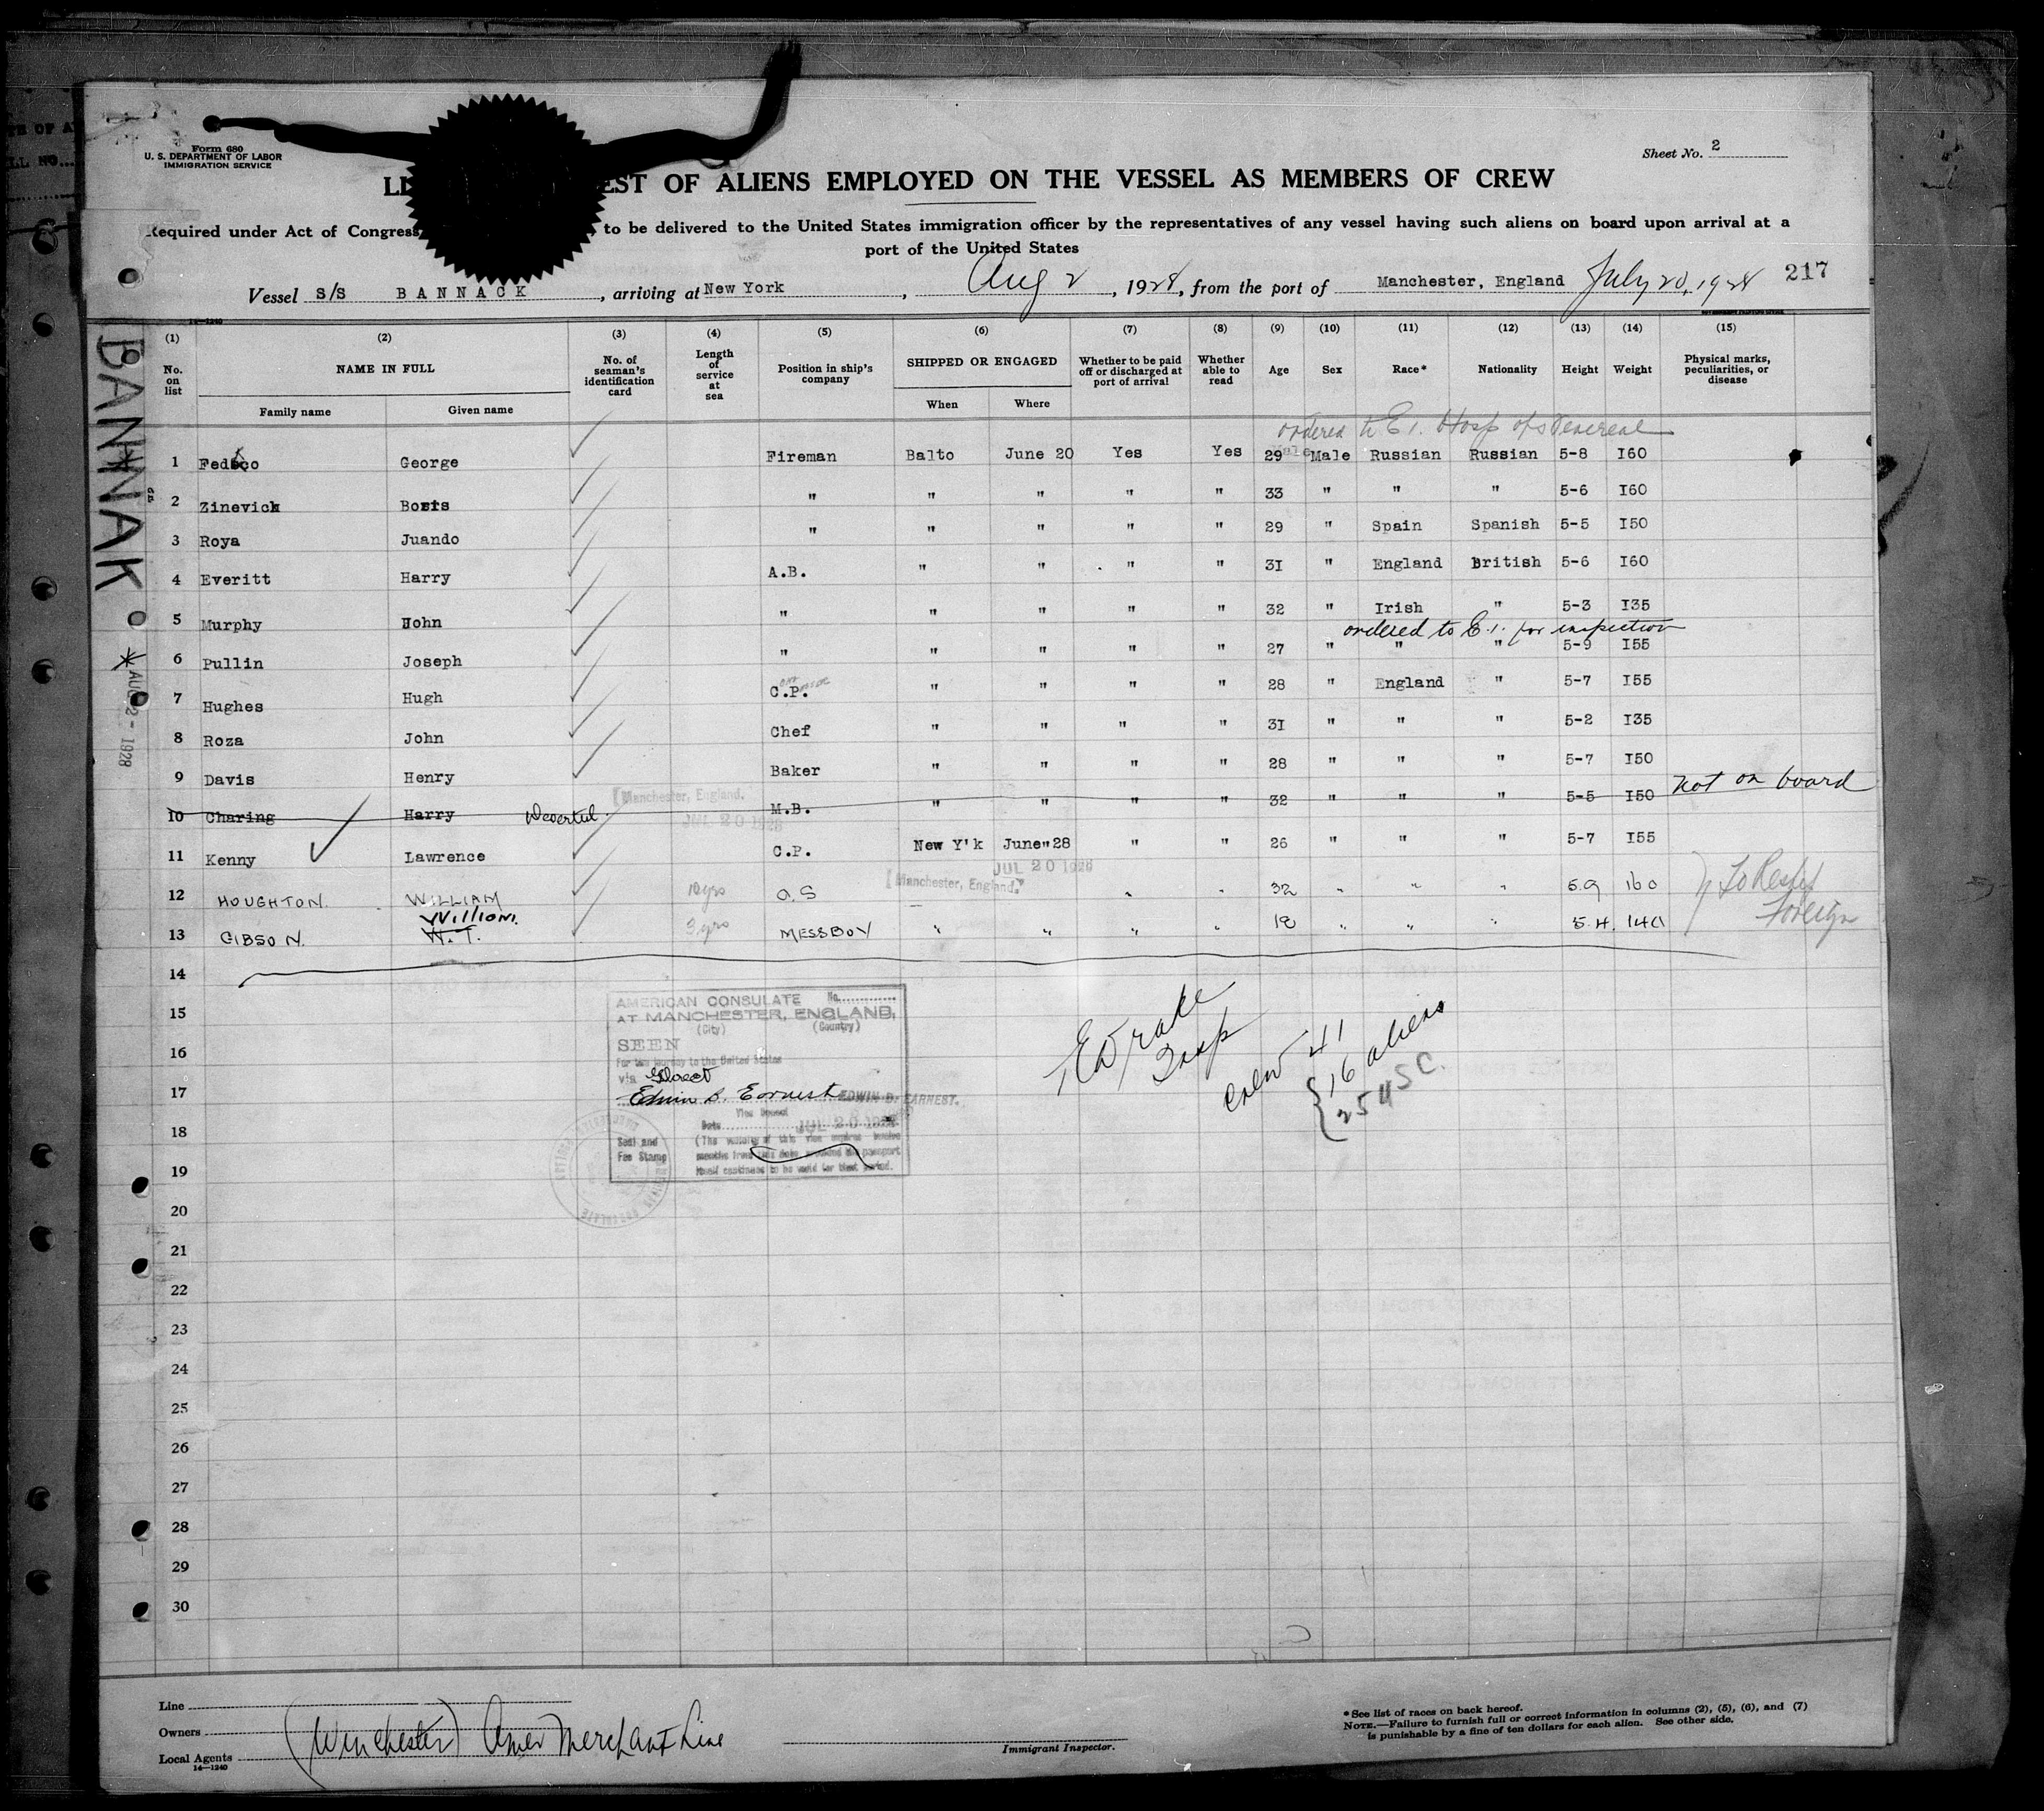 Form 680
U. S. DEPARTMENT OF LABOR
IMMIGRATION SERVICE
Sheet No. 2
EST OF ALIENS EMPLOYED ON THE VESSEL AS MEMBERS OF CREW
Required under Act of Congress to be delivered to the United States immigration officer by the representatives of any vessel having such aliens on board upon arrival at a
port of the United States
Vessel S/S BANNACK, arriving at New York, Aug 2, 1928, from the port of Manchester, England July 20, 1928 217
14—1240
(1) (2) (3) (4) (5) (6) (7) (8) (9) (10) (11) (12) (13) (14) (15)
No. on list NAME IN FULL No. of seaman's identification card Length of service at sea Position in ship's company SHIPPED OR ENGAGED Whether to be paid off or discharged at port of arrival Whether able to read Age Sex Race* Nationality Height Weight Physical marks, peculiarities, or disease
Family name Given name When Where
ordered to E.I. Hosp Venereal
1 George Fireman Balto June 20 Yes Yes 29 Male Russian Russian 5-8 I60
2 Zinevick Boris " " " " " 33 " " " 5-6 I60
3 Roya Juando " " " " " 29 " Spain Spanish 5-5 I50
4 Everitt Harry A.B. " " " " 3I " England British 5-6 I60
5 Murphy John " " " " " 32 " Irish " 5-3 I35
ordered to E.I. for inspection
6 Pullin Joseph " " " " " 27 " " " 5-9 I55
7 Hughes Hugh C.P. " " " " 28 " England " 5-7 I55
8 Roza John Chef " " " " 3I " " " 5-2 I35
9 Davis Henry Baker " " " " 28 " " " 5-7 I50
Manchester, England.
JUL 20 1928
10 Charing Harry Deserted M.B. " " " " 32 " " " 5-5 I50 not on board
11 Kenny Lawrence C.P. New Y'k June 28 " " 26 " " " 5-7 I55
JUL 20 1928
Manchester, England.
12 HOUGHTON. WILLIAM 10 yrs O.S " " 32 " " " 5.9 160
William.
13 GIBSON. W.T. 3 yrs MESSBOY " " " " 18 " " " 5.4. 140
Foreign
14
15
16
17
18
19
20
21
22
23
24
25
26
27
28
29
30
AMERICAN CONSULATE No.
AT MANCHESTER, ENGLAND.
(City) (Country)
SEEN
For the journey to the United States
via Direct
Edwin B. Earnest EDWIN B. EARNEST.
Vice Consul
Date JUL 20 1928
Seal and Fee Stamp
(The validity of this visa expires twelve
months from this date provided the passport
itself continues to be valid for that period.
E Drake
Insp
Crew 41
16 aliens
25 USC.
BANNAK
AUG 2 - 1928
Line
Owners
Local Agents
(Winchester) Amer Merchant Line
14—1240
Immigrant Inspector.
*See list of races on back hereof.
NOTE.—Failure to furnish full or correct information in columns (2), (5), (6), and (7)
is punishable by a fine of ten dollars for each alien. See other side.